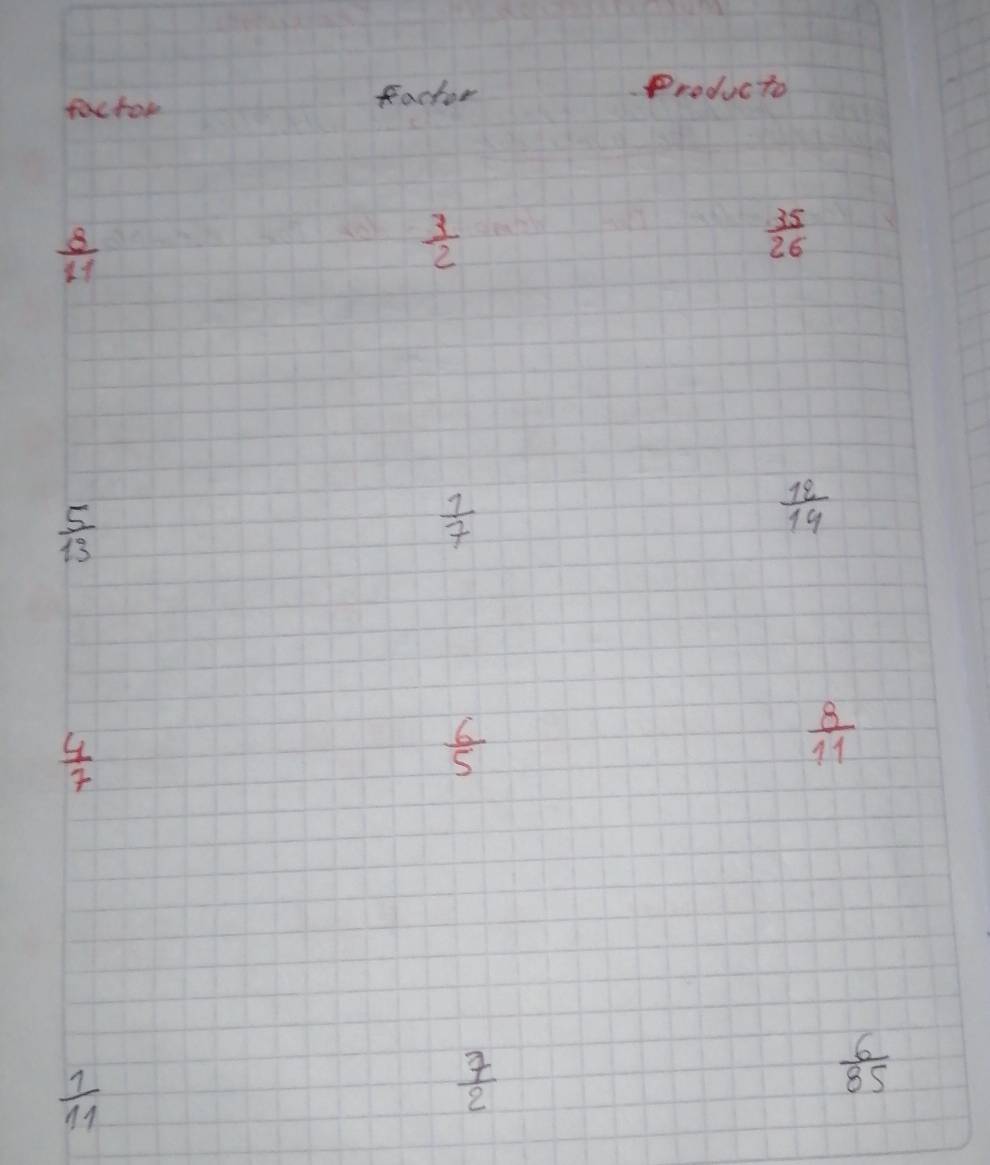 factor factor Producto
8/11 3/2 35/26
5/13 1/7 12/14
4/7 6/5 8/11
1/11 7/2 6/85